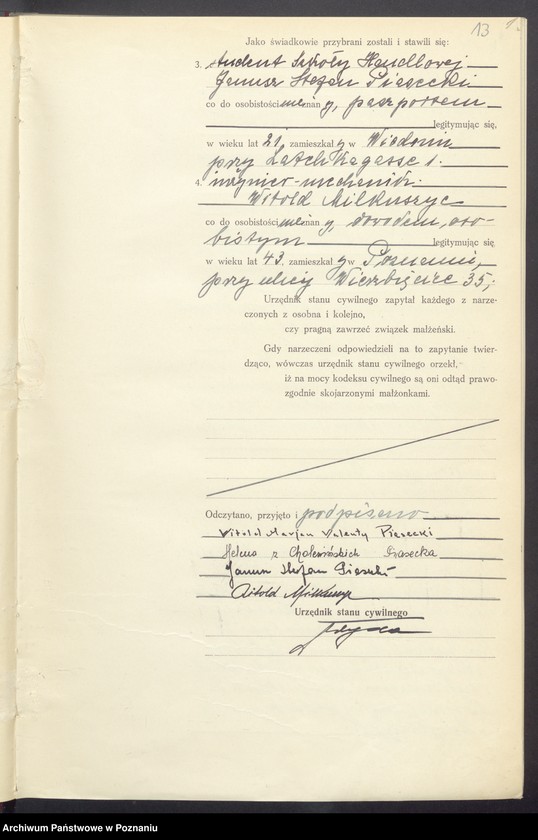 13
Jako świadkowie przybrani zostali i stawili się:
3. student Szkoły Handlowej
Janusz Stefan Piasecki
co do osobistości znany, paszportem
legitymując się,
w wieku lat 21, zamieszkały w Wiedniu
przy
4. inżynier-mechanik
Witold Milkuszyc
co do osobistości znany, dowodem oso-
bistym legitymując się
w wieku lat 43, zamieszkały w Poznaniu,
przy ulicy Wierzbięcice 35,
Urzędnik stanu cywilnego zapytał każdego z narze-
czonych z osobna i kolejno,
czy pragną zawrzeć związek małżeński.
Gdy narzeczeni odpowiedzieli na to zapytanie twier-
dząco, wówczas urzędnik stanu cywilnego orzekł,
iż na mocy kodeksu cywilnego są oni odtąd prawo-
zgodnie skojarzonymi małżonkami.
Odczytano, przyjęto i podpisano
Witold Marjan Valenty Piasecki
Helena z Piasecka
Janusz Stefan Piasecki
Witold
Urzędnik stanu cywilnego
Archiwum Państwowe w Poznaniu